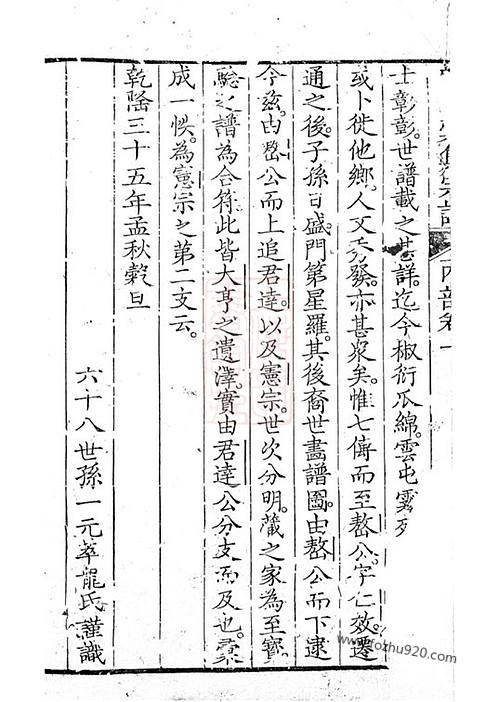 士彰彰世譜載之甚詳。迄今椒衍瓜綿。雲屯霧
或卜徙他鄉。人文秀發。亦甚衆矣。惟七傳而至嶅公。字仁效。遷
通之後。子孫日盛。門第星羅。其後裔世畫譜圖。由嶅公而下逮
今兹。由嶅公而上追君達。以及憲宗。世次分明。藏之家為至寶。
驗之譜為合符。此皆大亨之遺澤。實由君達公分支而及也。彙
成一帙。為憲宗之第二支云。
乾隆三十五年孟秋穀旦
六十八世孫一元萃龍氏謹識
www.tozhu920.com